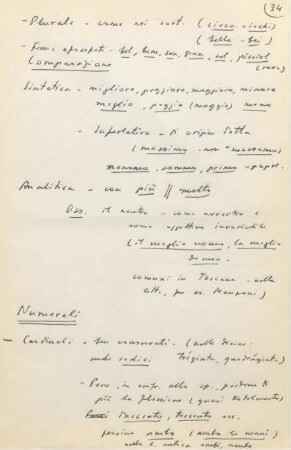 34
- Plurale - come nei sost. (cieco-ciechi)
(bello - bei)
- Forme apocopate - bel, buon, san, gran,
(raro)
Comparazione
Sintetica - migliore, peggiore, maggiore, minore
meglio, peggio (maggio) meno
- Superlativo - di origine dotta
(massimo - non
sommo, primo - popol.
Analitica - con più // molto
Oss. il neutro - come avverbio e
come aggettivo invariabile
(il meglio uomo, la meglio
comuni in Toscana - nella
lett., per es. Manzoni)
Numerali
- Cardinali - ben conservati - (nelle decine
sedici triginta, quadraginta)
- Però, in confr. allo sp., perdono di
più la flessione (quasi totalmente)
trecento ecc.
persino ambo (ambo le mani)